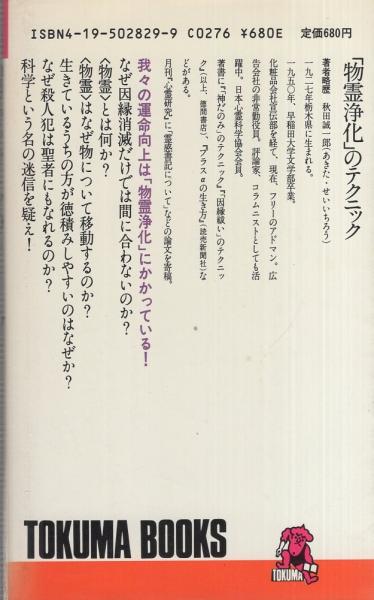 ISBN4-19-502829-9 C0276 ¥680E 定価680円
「物霊浄化」のテクニック
著者略歴 秋田誠一郎(あきた・せいいちろう)
一九二七年栃木県に生まれる。
一九五〇年、早稲田大学文学部卒業。
化粧品会社宣伝部を経て、現在、フリーのアドマン。広
告会社の非常勤役員、評論家、コラムニストとしても活
躍中。日本心霊科学協会会員。
著書に『「神だのみ」のテクニック』『「因縁祓い」のテクニッ
ク』(以上、徳間書店)、『プラスαの生き方』(読売新聞社)な
どがある。
月刊『心霊研究』に「霊感書記について」などの論文を寄稿。
我々の運命向上は「物霊浄化」にかかっている!
なぜ因縁消滅だけでは間に合わないのか?
〈物霊〉とは何か?
〈物霊〉はなぜ物について移動するのか?
生きているうちの方が徳積みしやすいのはなぜか?
なぜ殺人犯は聖者にもなれるのか?
科学という名の迷信を疑え!
TOKUMA BOOKS
TOKUMA